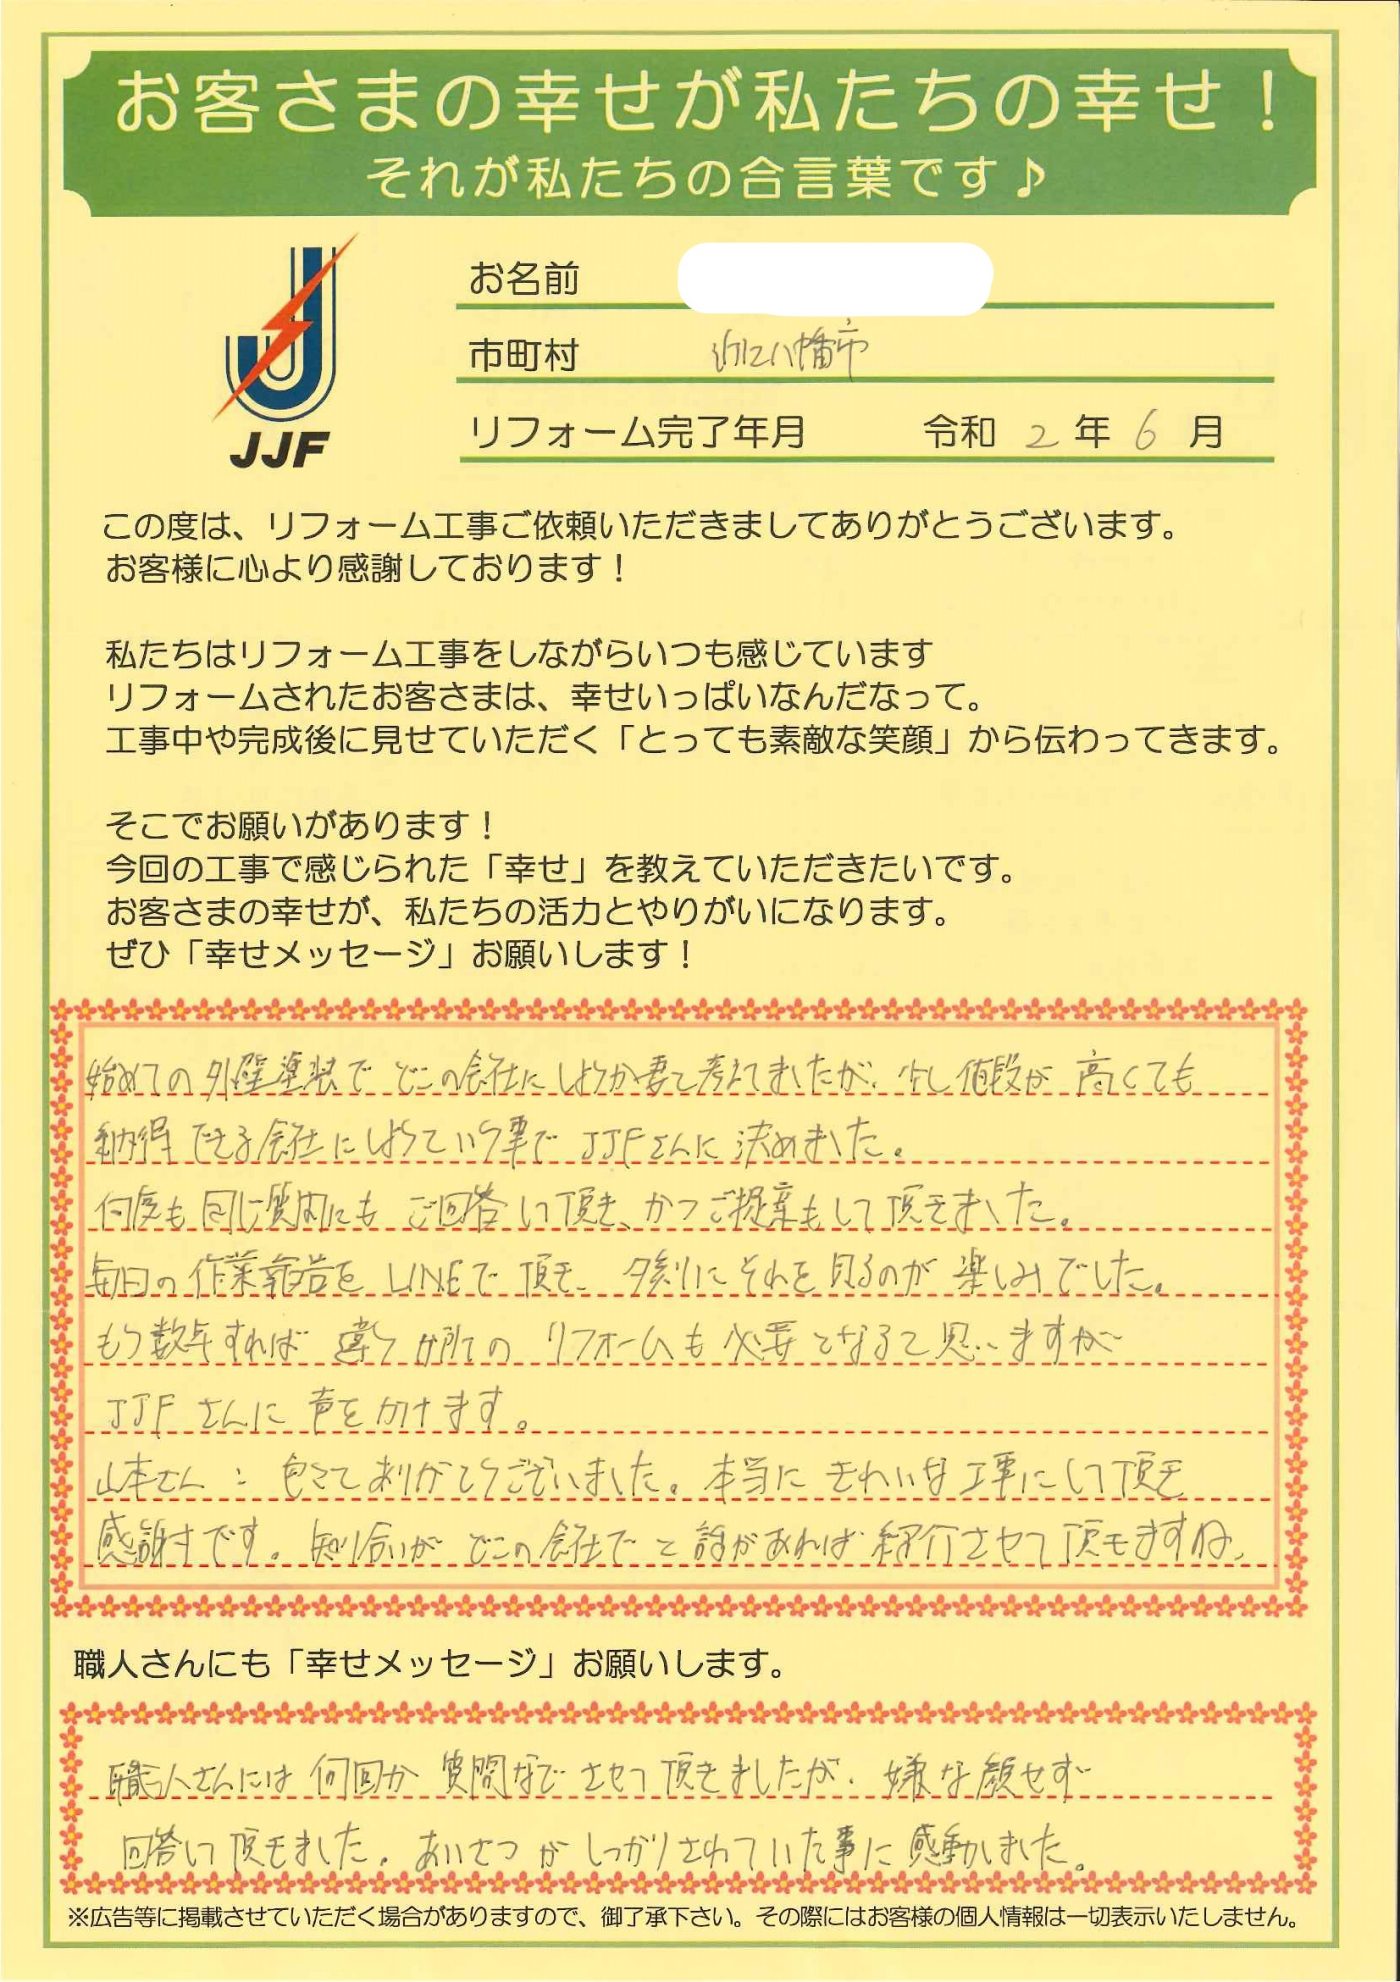 お客さまの幸せが私たちの幸せ！
それが私たちの合言葉です♪
JJF
お名前
市町村 近江八幡市
リフォーム完了年月 令和 2 年 6 月
この度は、リフォーム工事ご依頼いただきましてありがとうございます。
お客様に心より感謝しております！
私たちはリフォーム工事をしながらいつも感じています
リフォームされたお客さまは、幸せいっぱいなんだなって。
工事中や完成後に見せていただく「とっても素敵な笑顔」から伝わってきます。
そこでお願いがあります！
今回の工事で感じられた「幸せ」を教えていただきたいです。
お客さまの幸せが、私たちの活力とやりがいになります。
ぜひ「幸せメッセージ」お願いします！
始めての外壁塗装でどこの会社にしようか妻と考えてましたが、少し値段が高くても
納得できる会社にしようという事でJJFさんに決めました。
何度も同じ質問にもご回答して頂き、かつご提案もして頂きました。
毎日の作業報告をLINEで頂き、夕刻にそれを見るのが楽しみでした。
もう数年すれば違う か所でのリフォームも必要となると思いますが
JJFさんに声をかけます。
山本さん：色々とありがとうございました。本当にきれいな工事にして頂き
感謝です。知り合いがどこの会社でと話があれば紹介させて頂きますね、
職人さんにも「幸せメッセージ」お願いします。
職人さんには何回か質問などさせて頂きましたが、嫌な顔せず
回答して頂きました。あいさつがしっかりされていた事に感動しました。
※広告等に掲載させていただく場合がありますので、御了承下さい。その際にはお客様の個人情報は一切表示いたしません。